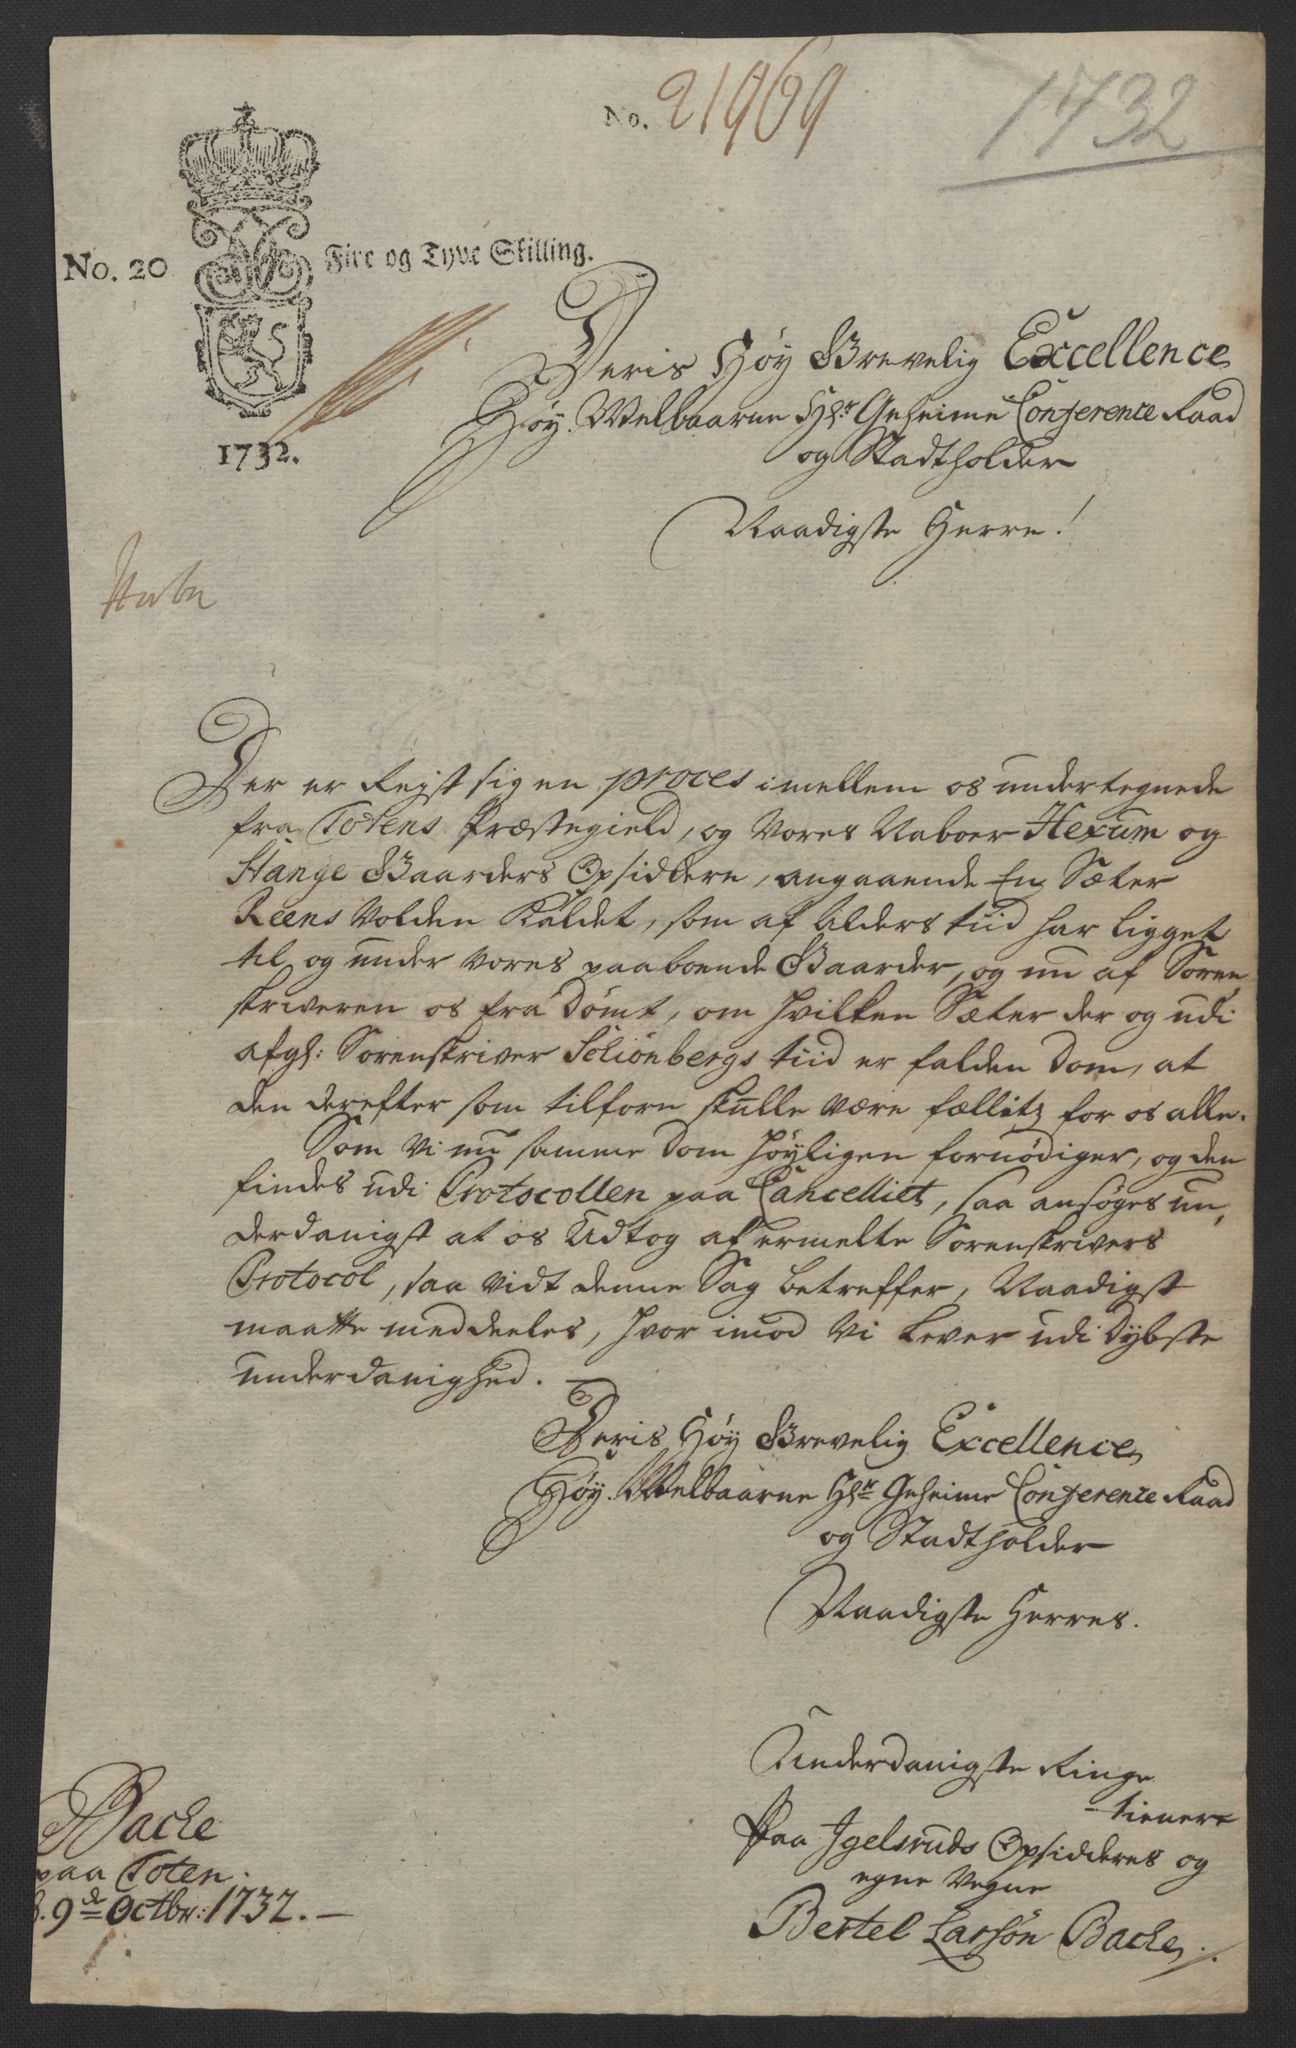 No. 21969
1732
No. 20
Fire og Tyve Skilling.
1732.
Deris Høy Grevelig Excellence
Høy Welbaarne Hr: Geheime Conference Raad
og Stadtholder
Naadigste Herre!
Der er Reyst sig en proces imellem os undertegnede
fra Totens Præstegield, og Vores Naboer Hexum og
Stange Gaarders Opsiddere, angaaende En Sæter
Reens Volden Kaldet, som af Alders tiid har ligget
til og under vores paaboende Gaarder, og nu af Soren
skriveren os fra dømt, om hvilken Sæter der og udi
afg: Sorenskriver Schiønbergs tiid er falden Dom, at
den derefter som tilforn skulle være fællitz for os alle.
Som Vi nu samme Dom høyligen fornødiger, og den
findes udi Protocollen paa Cancelliet, saa ansøges un,
derdanigst at os Udtog af ermelte Sorenskrivers
Protocol, saa vidt denne Sag betreffer, Naadigst
maatte meddeeles, hvor imod Vi Lever udi dybste
underdanighed.
Deris Høy Grevelig Excellence
Høy Welbaarne Hr Geheime Conference Raad
og Stadtholder
Naadigste Herres.
Underdanigste Ringe
tienere
Paa Igelsruds Opsidderes og
egne Vegne
Bertel Larsøn Backe
Backe
paa Toten.
d. 9de Octbr: 1732.